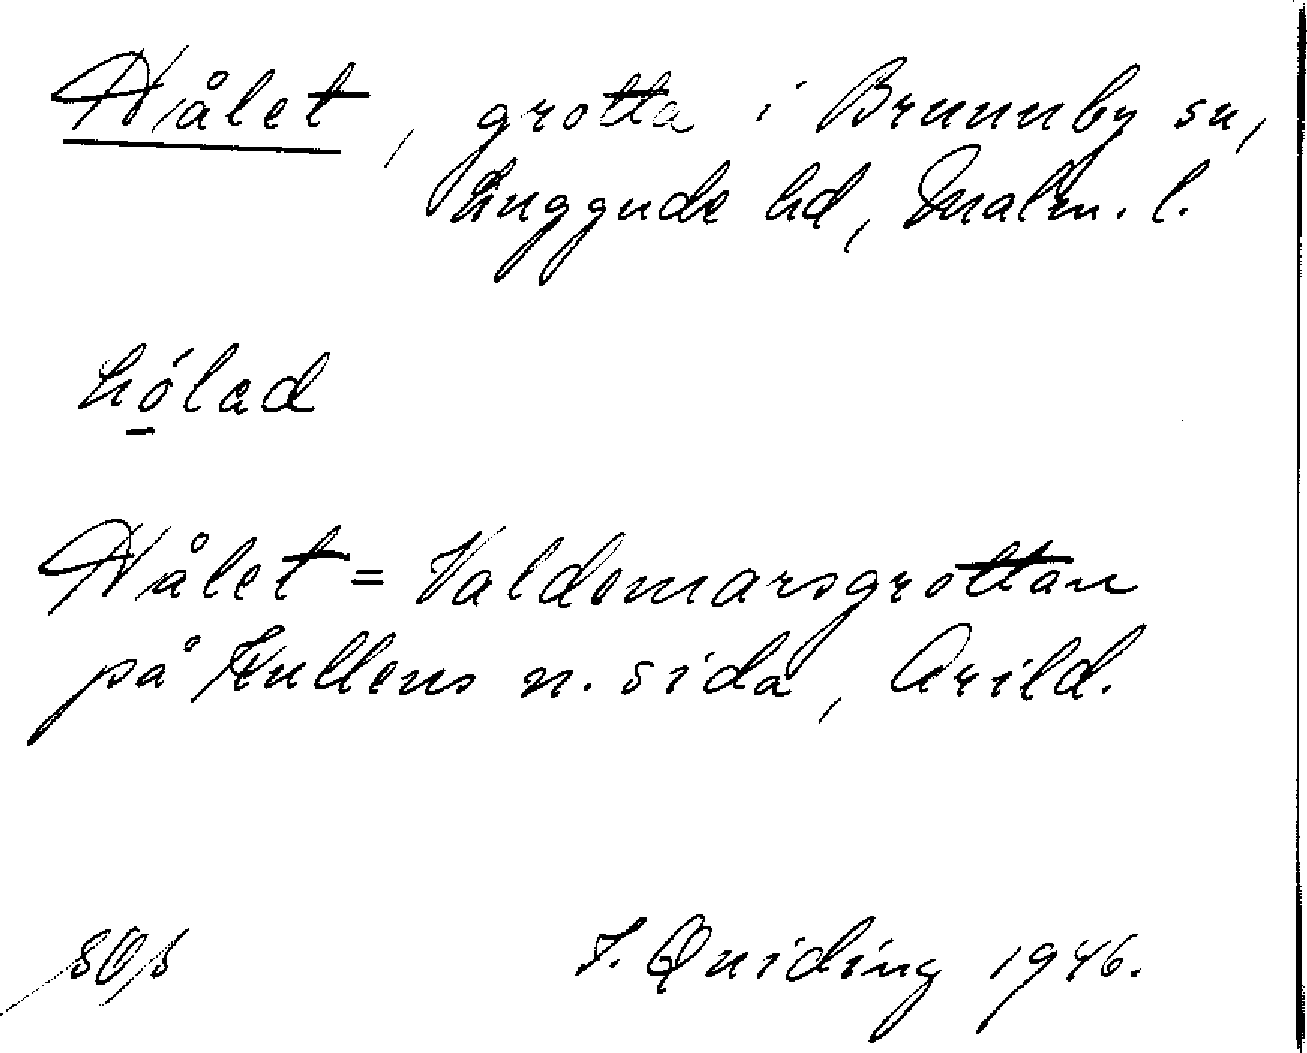 Hålet, grotta i Brunnby sn,
Luggude hd, Malm. l.
hólad
Hålet = Valdemarsgrottan
på Kullens n. sida, Arild.
I. Quiding 1946.